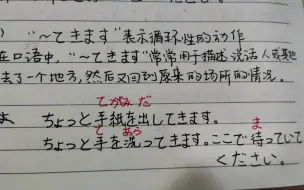 ）“～てきます”表示循环性的动作
在口语中，“～てきます”常常用于描述说话人或其他
去了一个地方，然后又回到原来的场所的情况。
てがみ だ
ちょっと手紙を出してきます。
て あら ま
ちょっと手を洗ってきます。ここで待っていて
ください。